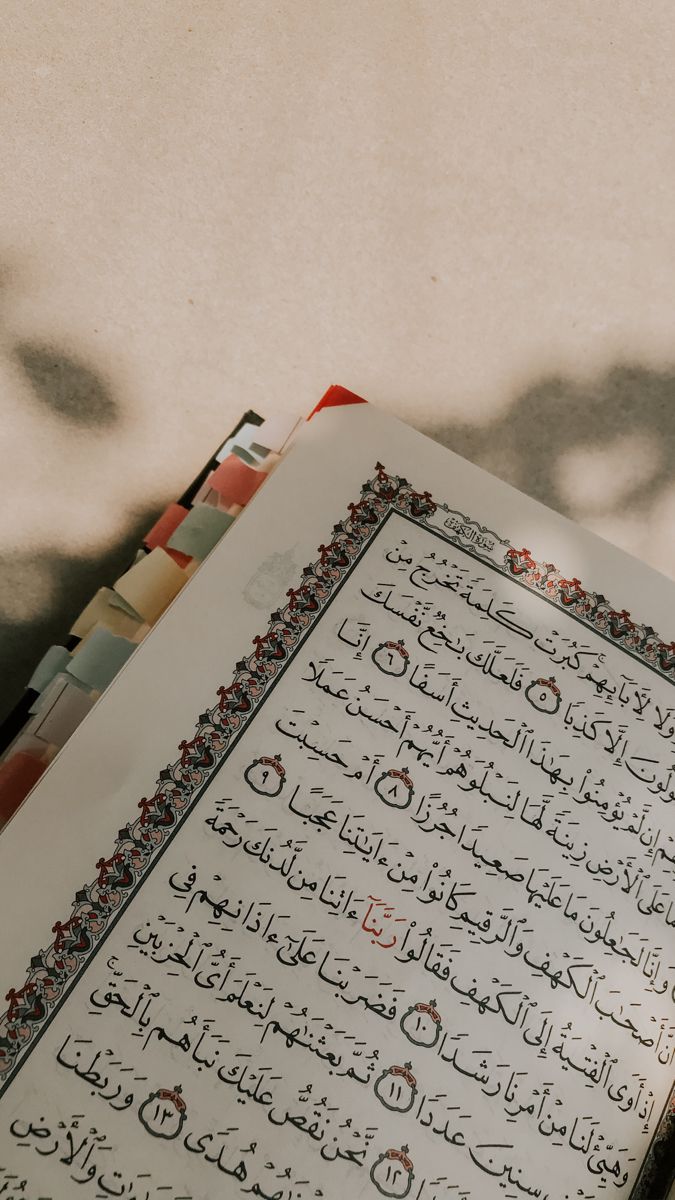 سُورَةُ الكَهْفِ
وَلَا لِأٓبَآئِهِمْۚ كَبُرَتْ كَلِمَةً تَخْرُجُ مِنْ
يَقُولُونَ إِلَّا كَذِبًا ٥ فَلَعَلَّكَ بَٰخِعٌ نَّفْسَكَ
إِن لَّمْ يُؤْمِنُوا۟ بِهَٰذَا ٱلْحَدِيثِ أَسَفًا ٦ إِنَّا
مَا عَلَى ٱلْأَرْضِ زِينَةً لَّهَا لِنَبْلُوَهُمْ أَيُّهُمْ أَحْسَنُ عَمَلًا
وَإِنَّا لَجَٰعِلُونَ مَا عَلَيْهَا صَعِيدًا جُرُزًا ٨ أَمْ حَسِبْتَ
أَنَّ أَصْحَٰبَ ٱلْكَهْفِ وَٱلرَّقِيمِ كَانُوا۟ مِنْ ءَايَٰتِنَا عَجَبًا ٩
إِذْ أَوَى ٱلْفِتْيَةُ إِلَى ٱلْكَهْفِ فَقَالُوا۟ رَبَّنَآ ءَاتِنَا مِن لَّدُنكَ رَحْمَةً
وَهَيِّئْ لَنَا مِنْ أَمْرِنَا رَشَدًا ١٠ فَضَرَبْنَا عَلَىٰٓ ءَاذَانِهِمْ فِي
سِنِينَ عَدَدًا ١١ ثُمَّ بَعَثْنَٰهُمْ لِنَعْلَمَ أَيُّ ٱلْحِزْبَيْنِ
١٢ نَّحْنُ نَقُصُّ عَلَيْكَ نَبَأَهُم بِٱلْحَقِّۚ
هُدًى ١٣ وَرَبَطْنَا
وَٱلْأَرْضِ